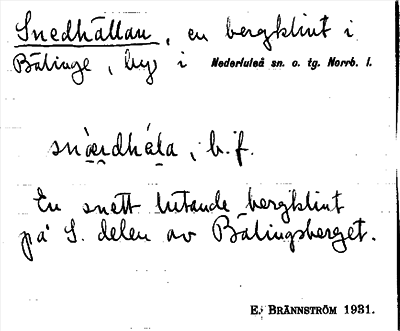 Snedhällan, en bergklint i
Bälinge, by i Nederluleå sn. o. tg. Norrb. l.
snæ̀rdháḷa, b.f.
En snett lutande bergklint
på S. delen av Bälingsberget.
E. BRÄNNSTRÖM 1931.